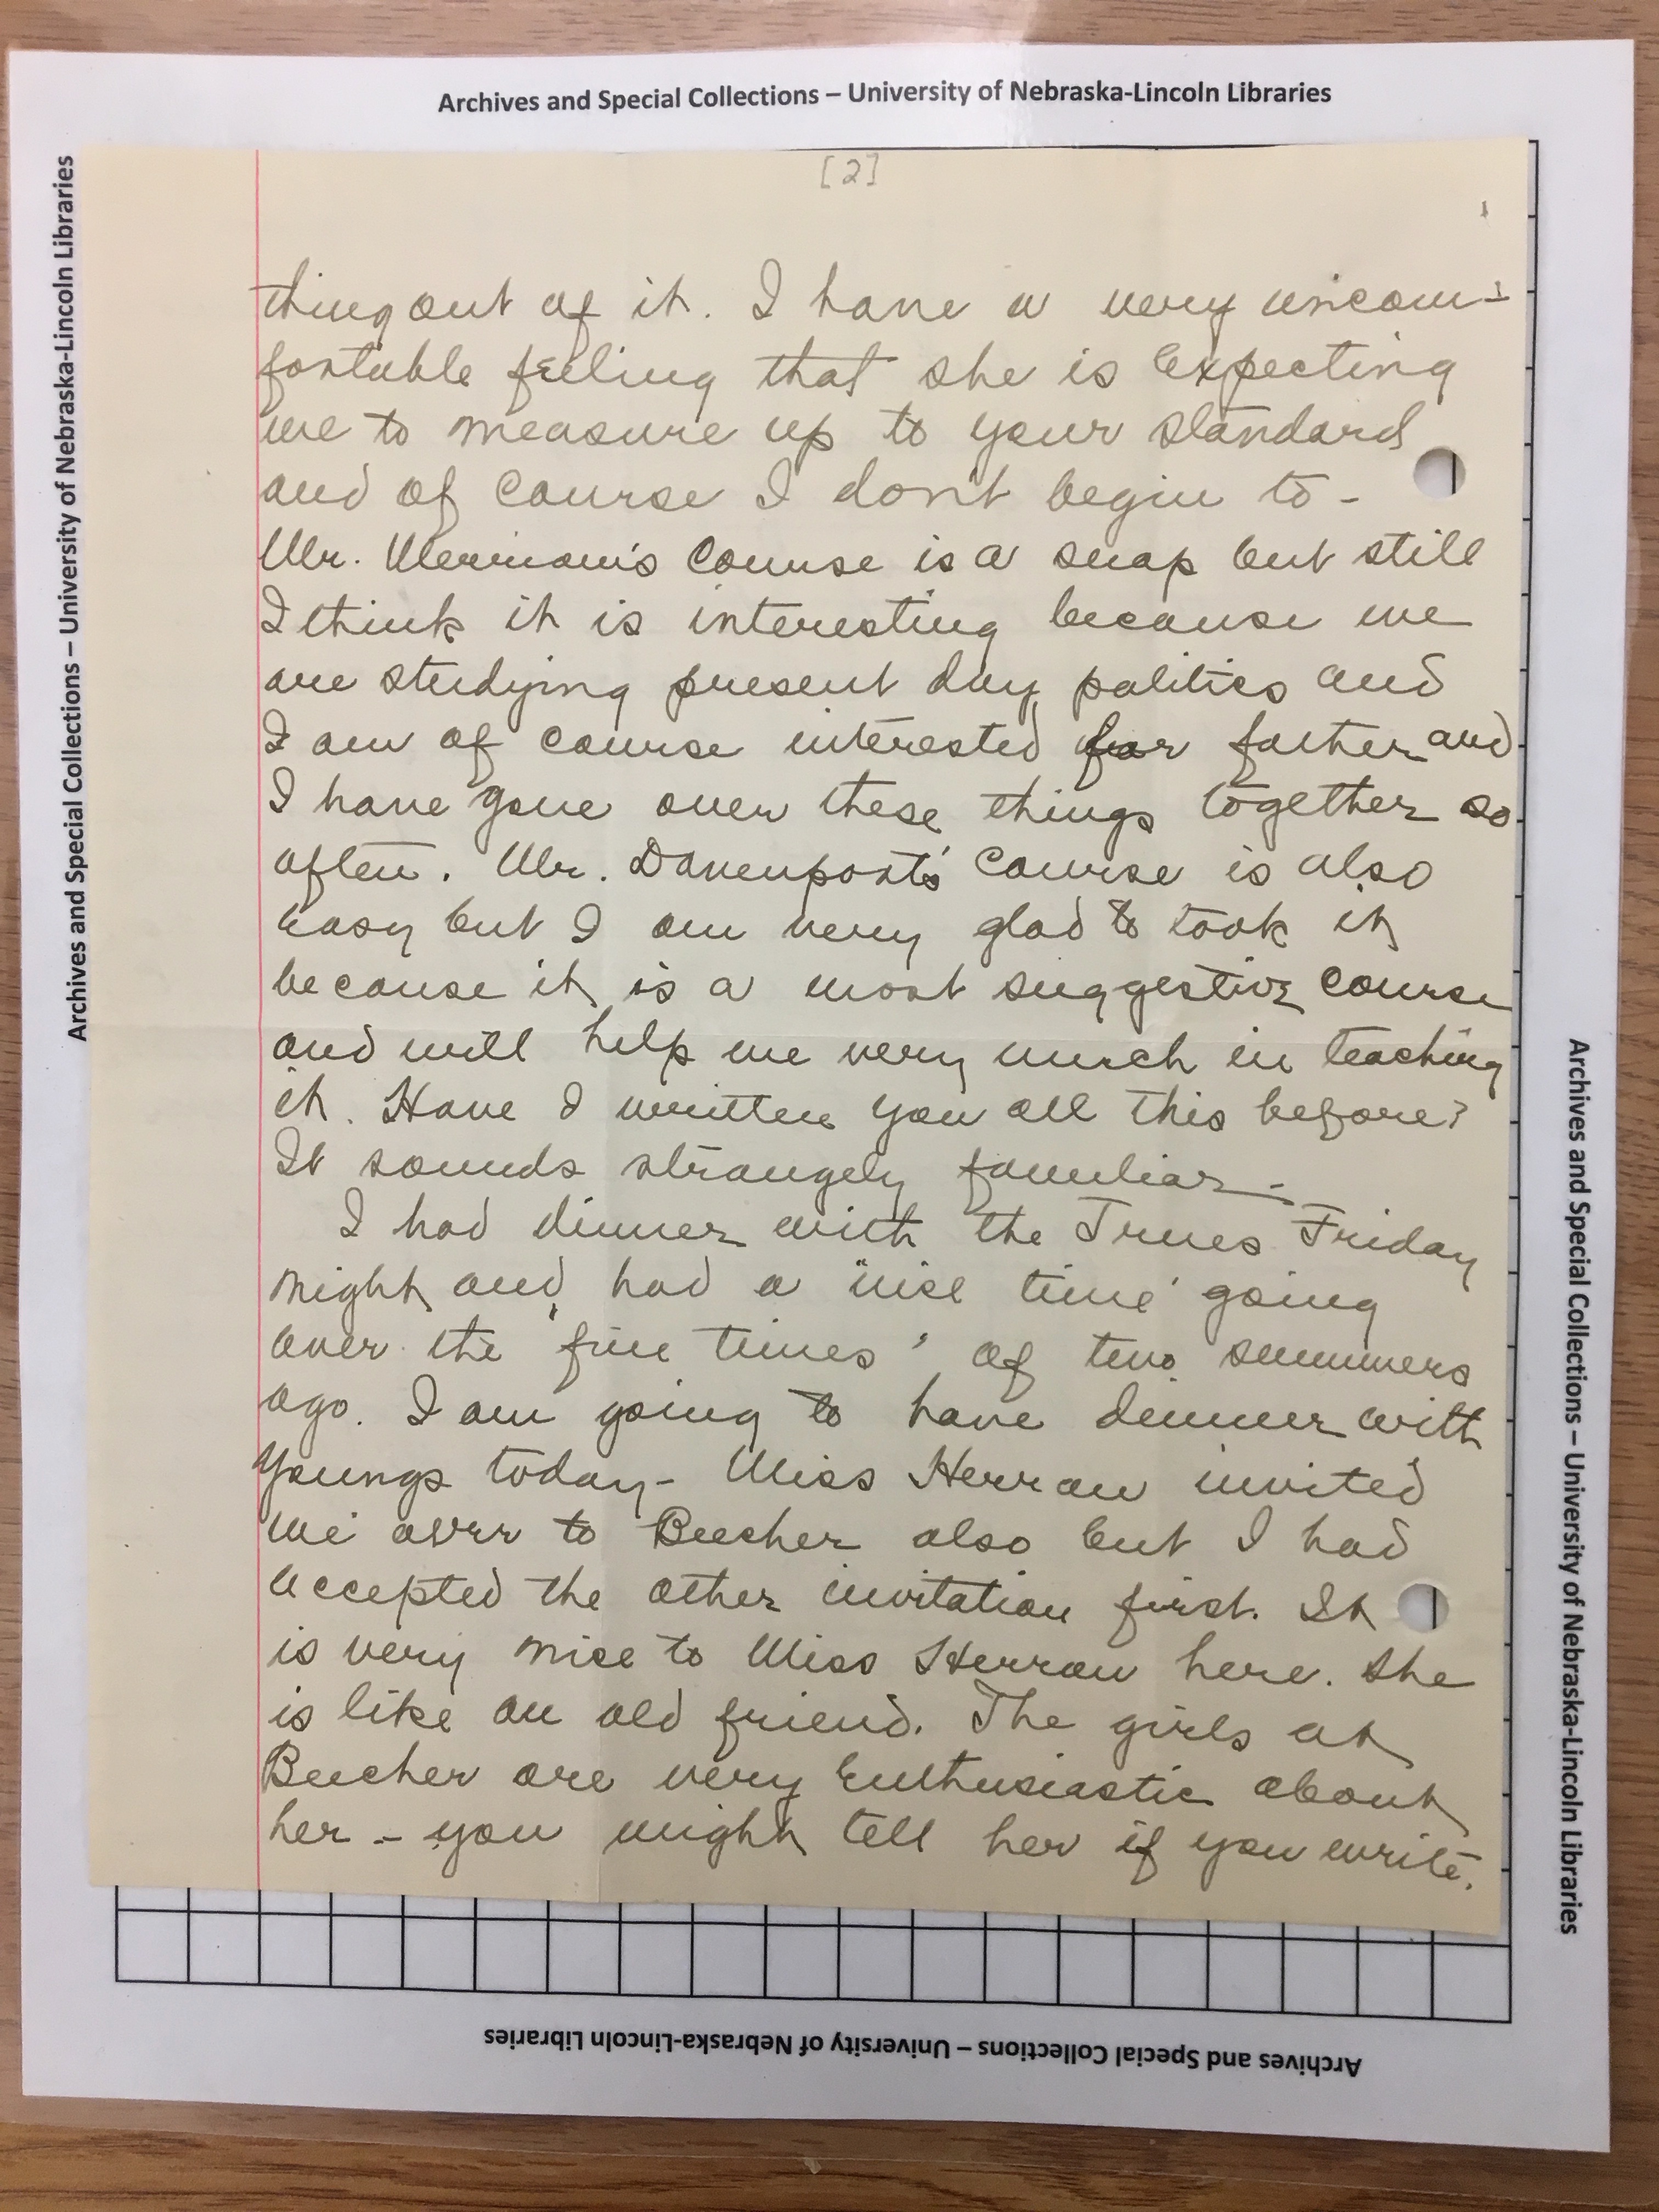 Archives and Special Collections – University of Nebraska-Lincoln Libraries
[2]
thing out of it. I have a very uncom-
fortable feeling that she is expecting
me to measure up to your standard
and of course I don't begin to -
Mr. Merriam's course is a snap but still
I think it is interesting because we
are studying present day politics and
I am of course interested for father and
I have gone over these things together so
often. Mr. Davenport's course is also
easy but I am very glad to took it
because it is a most suggestive course
and will help me very much in teaching
it. Have I written you all this before?
It sounds strangely familiar -
I had dinner with the Trues Friday
night and had a "nise time" going
over the "fine times" of two summers
ago. I am going to have dinner with
Youngs today - Miss Herron invited
me over to Beecher also but I had
accepted the other invitation first. It
is very nice to Miss Herron here. She
is like an old friend. The girls at
Beecher are very enthusiastic about
her - you might tell her if you write.
Archives and Special Collections – University of Nebraska-Lincoln Libraries
Archives and Special Collections – University of Nebraska-Lincoln Libraries
Archives and Special Collections – University of Nebraska-Lincoln Libraries